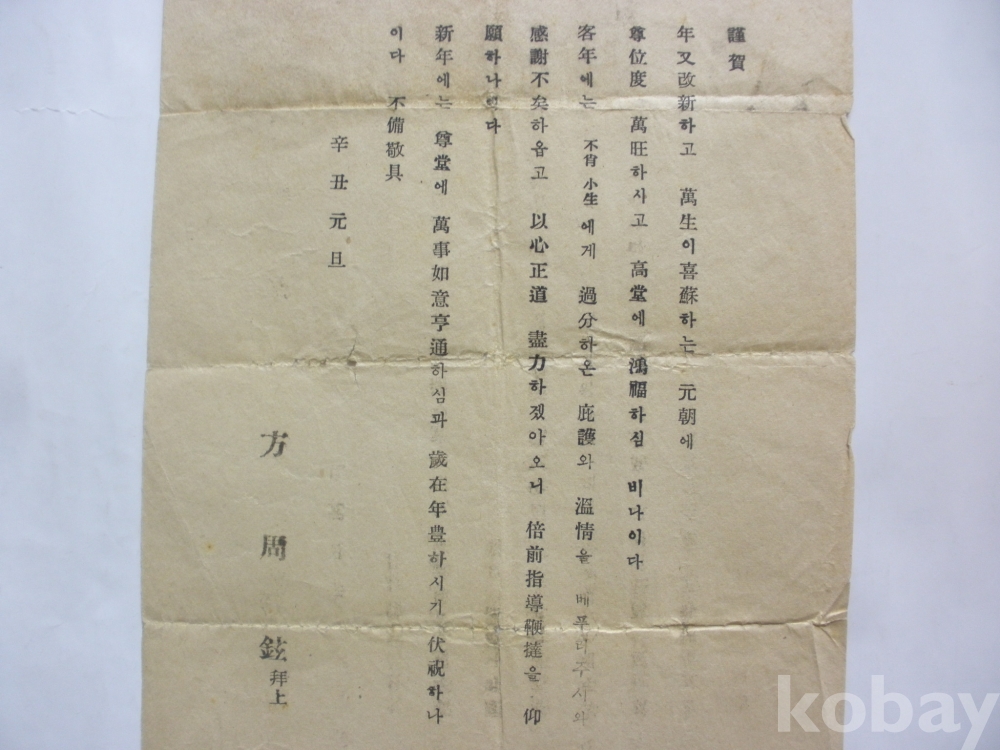 謹賀
年又改新하고 萬生이喜蘇하는 元朝에
尊位度 萬旺하사고 高堂에 鴻福하심 비나이다
客年에는 不肯小生에게 過分하온 庇護와 溫情을 베푸러주시와
感謝不矣하옵고 以心正道 盡力하겠아오니 倍前指導鞭撻을 仰
願하나이다
新年에는 尊堂에 萬事如意亨通하심과 歲在年豊하시기 伏祝하나
이다 不備敬具
辛丑元旦
方周鉉 拜上
kobay